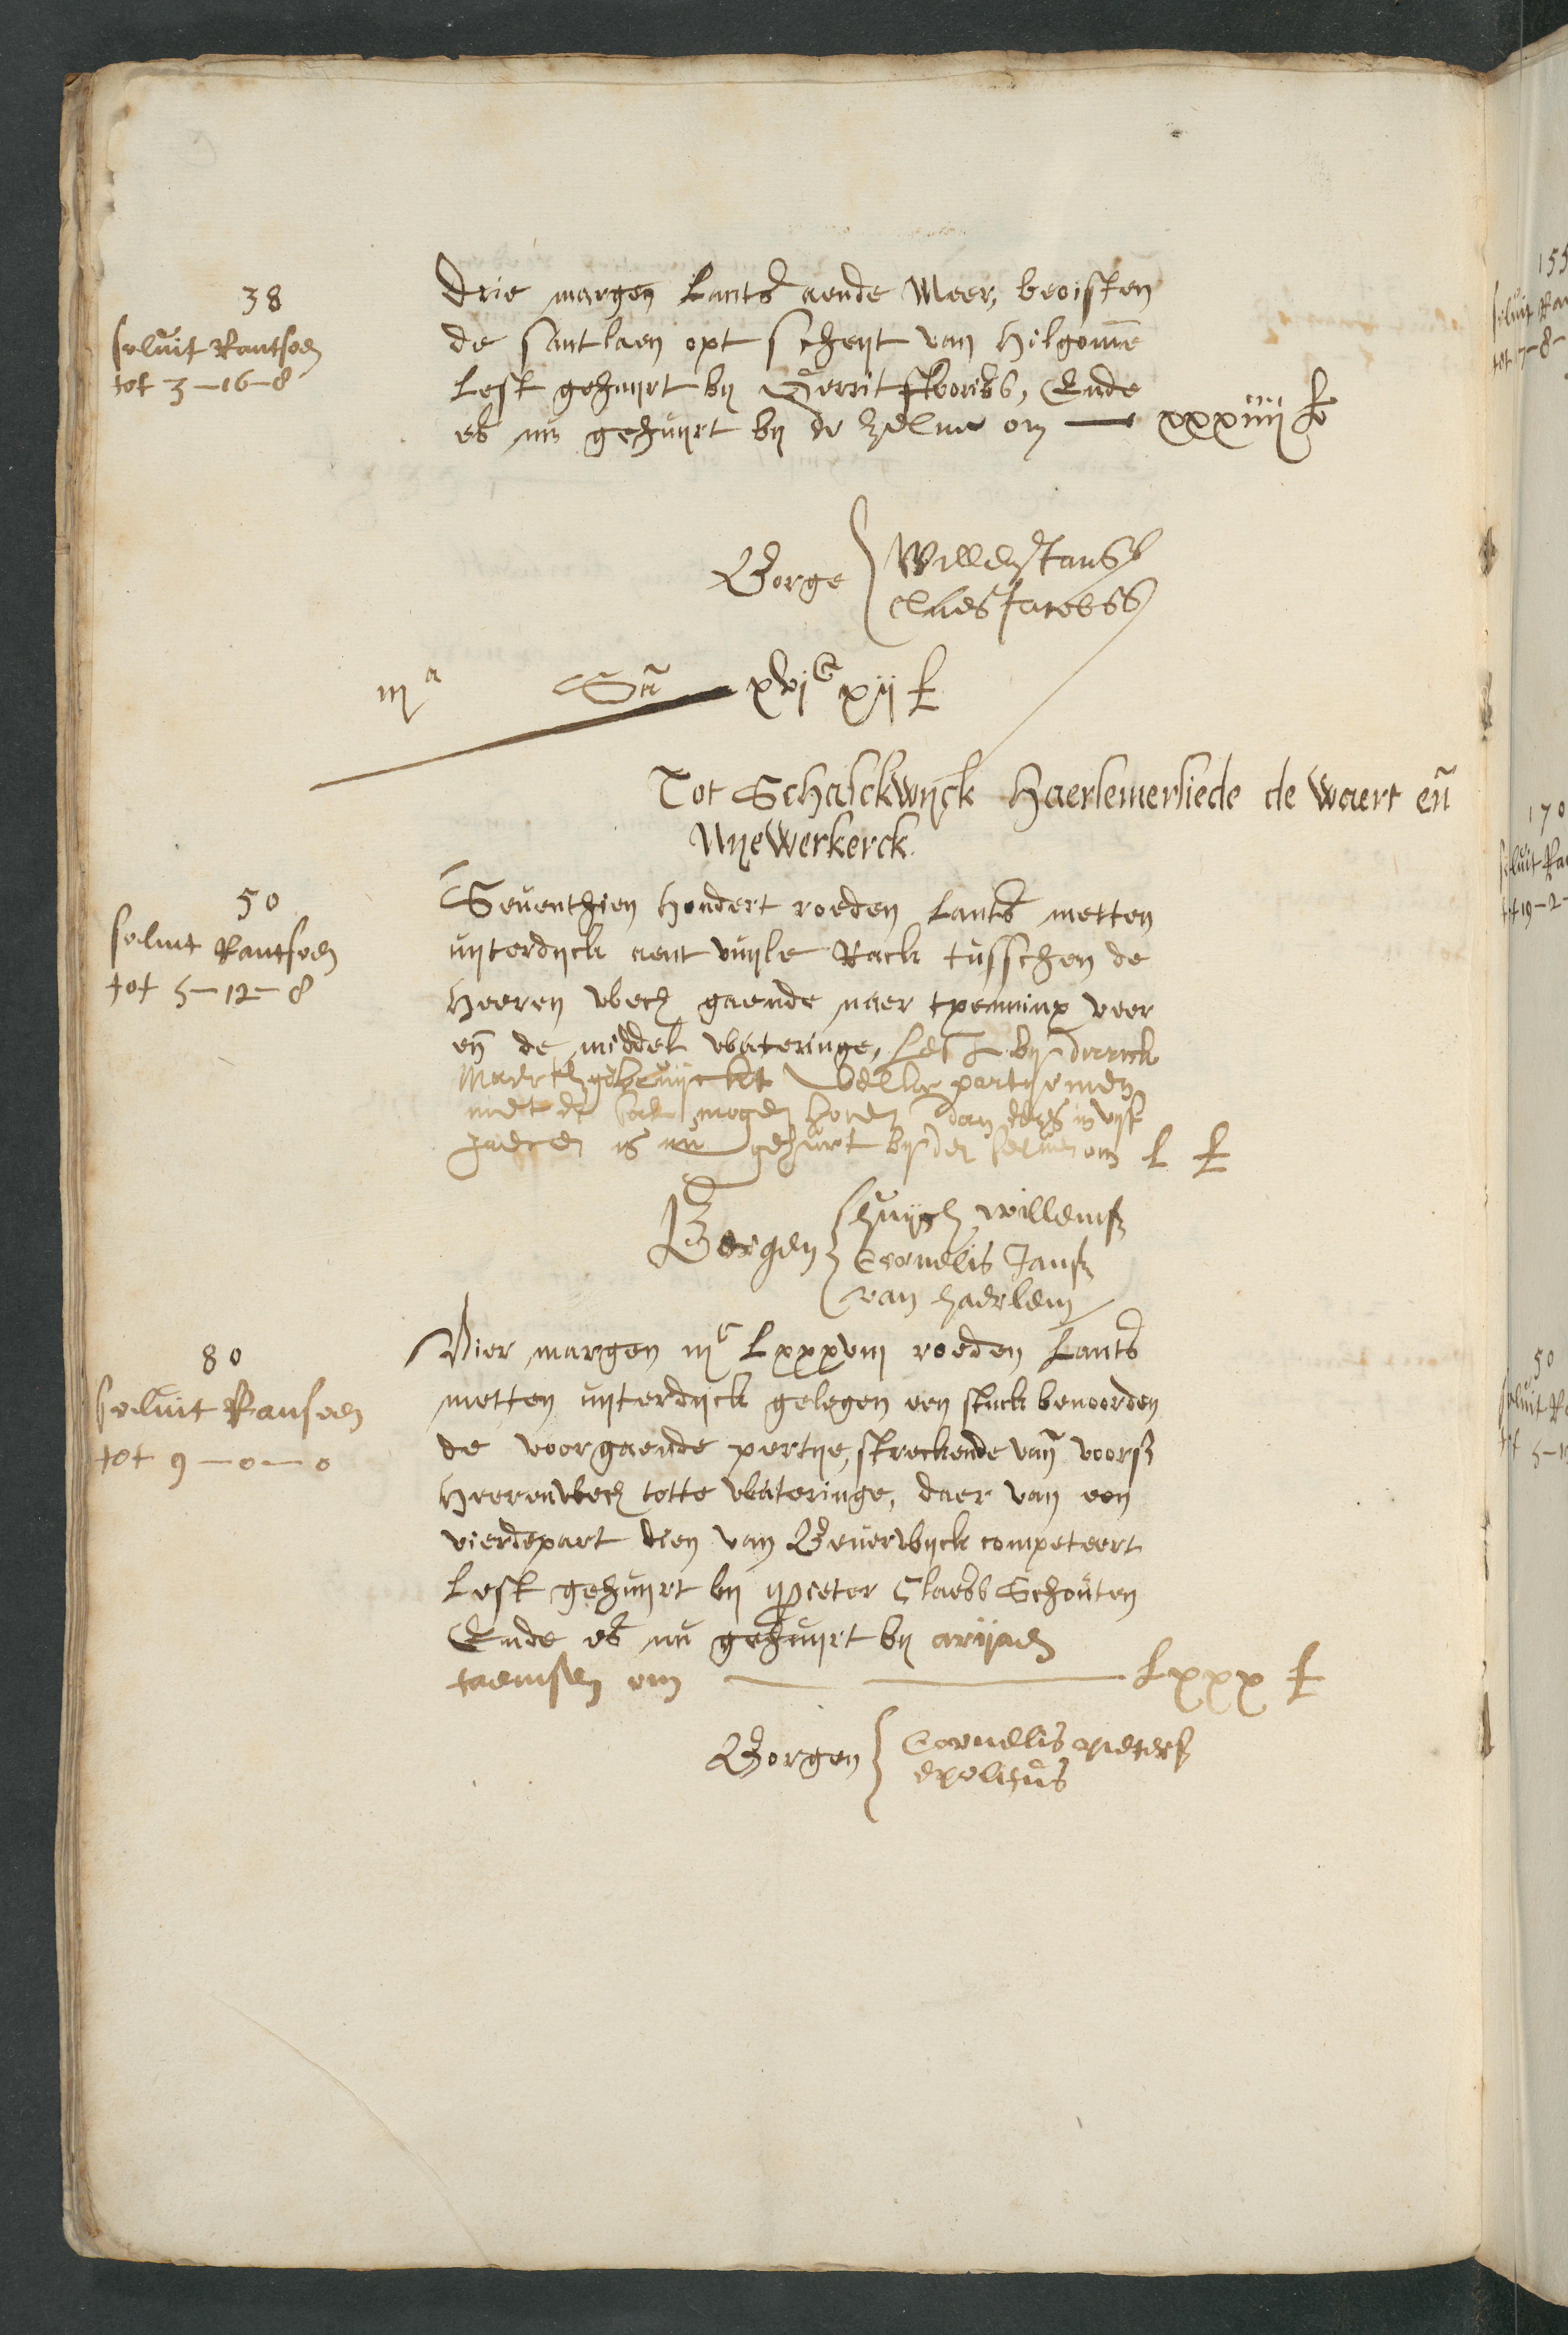 38
soluit Rantsoen
tot 3-16-8
Drie margen Lants aende Meer, beoisten
de santlaen opt scheyt van Hilgomē
Lest gehuyrt by Gerrit Floriss, Ende
es nu gehuyrt by de zelue om — xxxiiij £
Borge Willem Janss
Claes Jacobss
iija Sā xvjC xij £
Tot Schalckwyck Haerlemerliede de Waert eñ
Nyewerkerck.
50
soluit Rantsoen
tot 5-12-8
Seuenthien Hondert roeden Lants metten
uyterdyck aent vuyle Rack tusschen de
Heeren wech gaende naer tpenninx veer
eñ de middel Wateringe, Lest by Dirrick
gebruyckt welcke partye men
niet de moge dan eens in vyf
Jaeren is nu gehuert by den seluen om L £
Borgen Huygh willemsz
Cornelis Jansz
van haerlem
80
soluit Ransoen
tot 9-0-0
Vier margen iijC Lxxxviij roeden Lants
metten uyterdyck gelegen een stuck benoorden
de voorgaende pertye, streckende vañ voorsz
Heerenwech totte Wateringe, daer van een
vierdepart dien van Beuerwyck competeert
Lest gehuyrt by Pieter Claess Schouten
Ende es nu gehuyrt by arijaen
om — Lxxx £
Borgen Cornelis pietersz
155
soluit
tot 7-8-
170
soluit
tot 19-2-
50
soluit
tot 5-